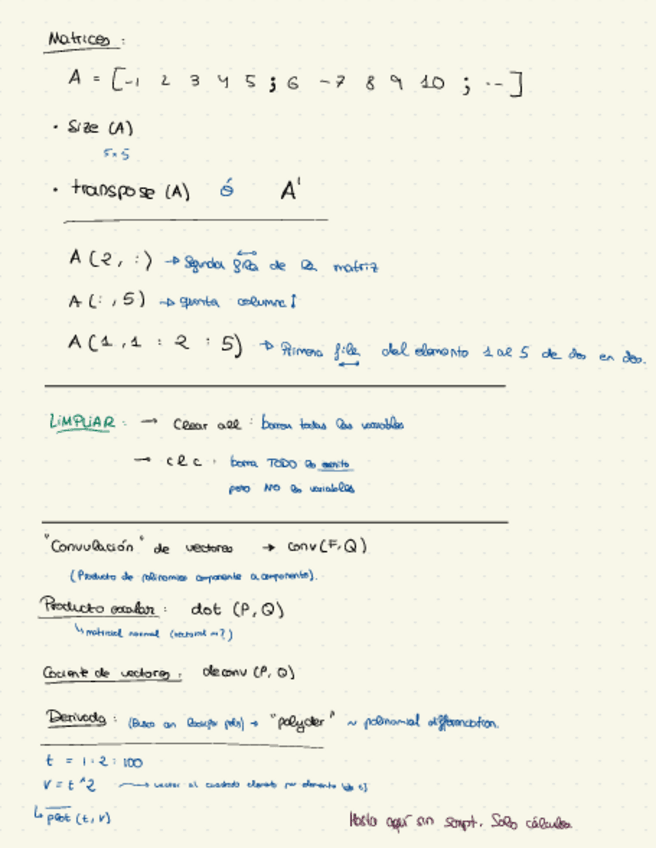 Matrices :
A = [-1 2 3 4 5 ; 6 -7 8 9 10 ; ...]
• Size (A)
5x5
• transpose (A) ó A'
A (2, :) → Segunda fila de la matriz
A (: , 5) → quinta columna
A (1, 1 : 2 : 5) → Primera fila del elemento 1 al 5 de dos en dos.
LIMPIAR : → Clear all : borra todas las variables
→ clc : borra TODO lo escrito
pero NO las variables
"Convulación" de vectores → conv(F, Q)
(Producto de polinomios componente a componente).
Producto escalar : dot (P, Q)
↳ matricial normal (vectorial ~?)
Cociente de vectores : deconv (P, Q)
Derivada : → "polyder" ~ polinomial differenciation.
t = 1:2:100
v = t^2 → vector al cuadrado elemento
↳ plot (t, v)
Hasta aquí sin script. Solo cálculos